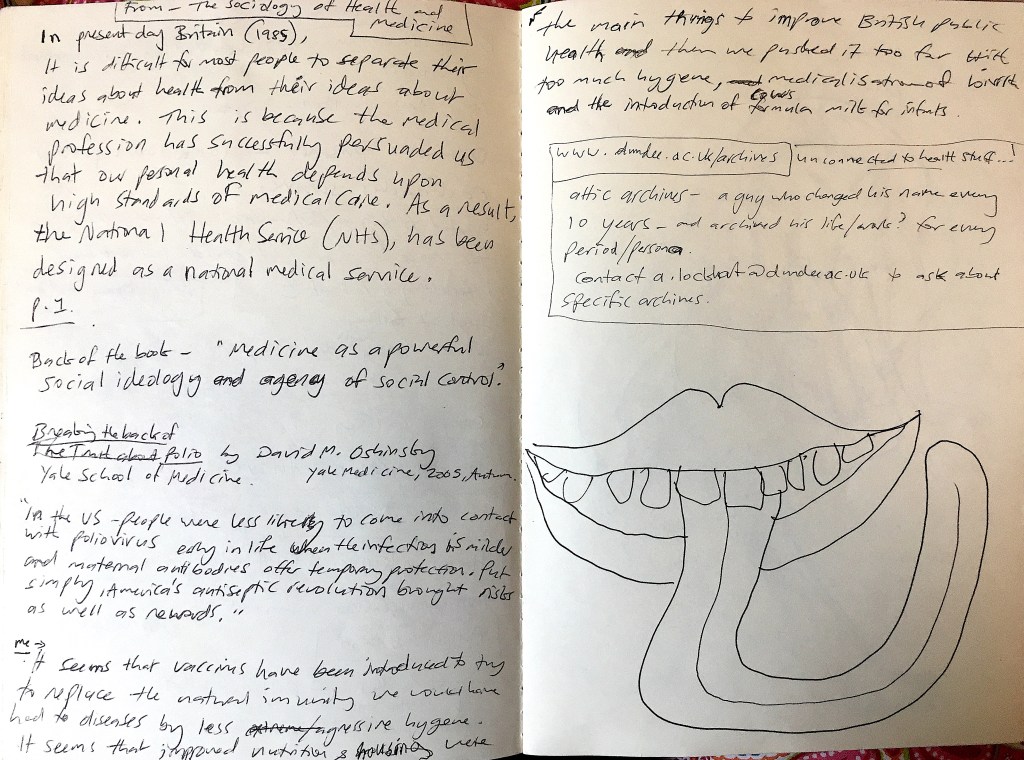 From - The sociology of Health and
medicine
In present day Britain (1985),
It is difficult for most people to separate their
ideas about health from their ideas about
medicine. This is because the medical
profession has successfully persuaded us
that our personal health depends upon
high standards of medical care. As a result,
the National Health Service (NHS), has been
designed as a national medical service.
p.1.
Back of the book - "Medicine as a powerful
social ideology and agency of social control."
Breaking the back of
The Truth about Polio by David M. Oshinsky
Yale School of Medicine. Yale Medicine, 2005, Autumn.
"In the US - people were less likely to come into contact
with poliovirus early in life when the infection is milder
and maternal antibodies offer temporary protection. Put
simply, America's antiseptic revolution brought risks
as well as rewards."
me →
It seems that vaccines have been introduced to try
to replace the natural immunity we would have
had to diseases by less extreme/agressive hygene.
It seems that improved nutrition & housing were
the main things to improve British public
health and then we pushed it too far with
too much hygene, and medicalisation of birth
cows
and the introduction of formula milk for infants.
www.dundee.ac.uk/archives unconnected to health stuff...!
attic archives - a guy who changed his name every
10 years - and archived his life/work? for every
period/persona.
contact a.lockhart@dundee.ac.uk to ask about
specific archives.